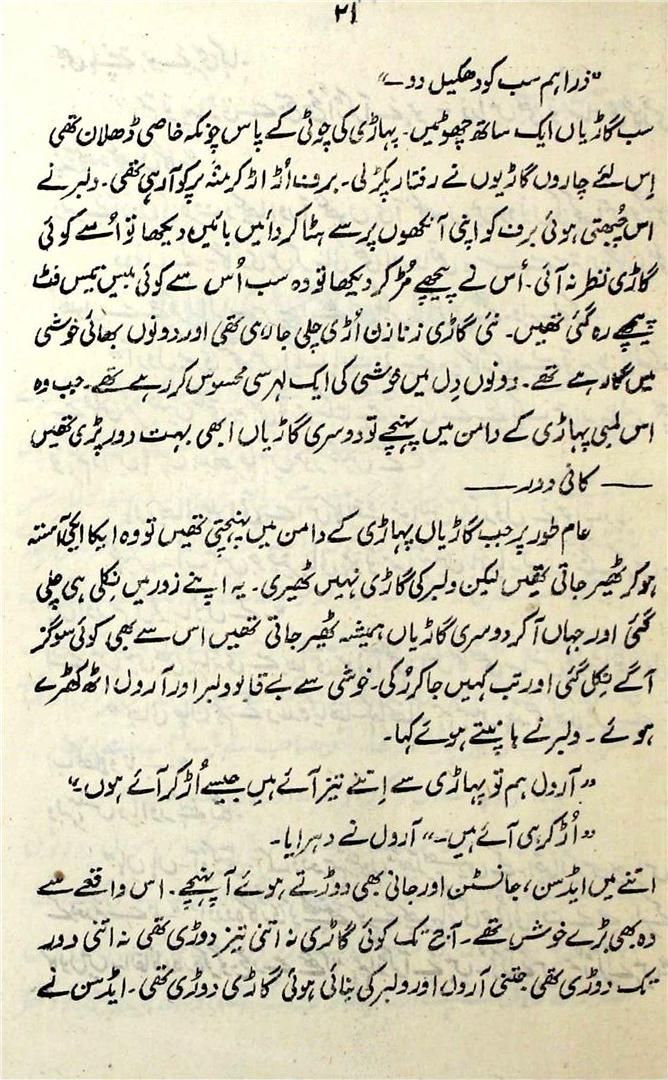 ۲۱
"ذرا ہم سب کو دھکیل دو۔"
سب گاڑیاں ایک ساتھ چھوٹیں۔ پہاڑی کی چوٹی کے پاس چونکہ خاصی ڈھلان تھی
اِس لئے چاروں گاڑیوں نے رفتار پکڑ لی۔ برف اُڑ اڑ کر منہ پر کو آ رہی تھی۔ دلبر نے
اس چُبھتی ہوئی برف کو اپنی آنکھوں پر سے ہٹا کر دائیں بائیں دیکھا تو اُسے کوئی
گاڑی نظر نہ آئی۔ اُس نے پیچھے مُڑ کر دیکھا تو وہ سب اُس سے کوئی بیس تیس فٹ
پیچھے رہ گئی تھیں۔ نئی گاڑی زنازن اُڑی چلی جا رہی تھی اور دونوں بھائی خوشی
میں گا رہے تھے۔ دونوں دِل میں خوشی کی ایک لہر سی محسوس کر رہے تھے۔ جب وہ
اس لمبی پہاڑی کے دامن میں پہنچے تو دوسری گاڑیاں ابھی بہت دور پڑی تھیں
— کافی دور —
عام طور پر جب گاڑیاں پہاڑی کے دامن میں پہنچتی تھیں تو وہ ایکا ایکی آہستہ
ہو کر ٹھیر جاتی تھیں لیکن ولبر کی گاڑی نہیں ٹھیری۔ یہ اپنے زور میں نکلی ہی چلی
گئی اور جہاں آ کر دوسری گاڑیاں ہمیشہ ٹھیر جاتی تھیں اس سے بھی کوئی سو گز
آگے نکل گئی اور تب کہیں جا کر رُکی۔ خوشی سے بے قابو ولبر اور آرول اٹھ کھڑے
ہوئے۔ ولبر نے ہانپتے ہوئے کہا۔
"آرول ہم تو پہاڑی سے اِتنے تیز آئے ہیں جیسے اُڑ کر آئے ہوں۔"
"اُڑ کر ہی آئے ہیں۔" آرول نے دہرایا۔
اتنے میں ایڈسن، جانسٹن اور جانی بھی دوڑتے ہوئے آ پہنچے۔ اس واقعے سے
وہ بھی بڑے خوش تھے۔ آج تک کوئی گاڑی نہ اتنی تیز دوڑی تھی نہ اتنی دور
تک دوڑی تھی جتنی آرول اور ولبر کی بنائی ہوئی گاڑی دوڑی تھی۔ ایڈسن نے